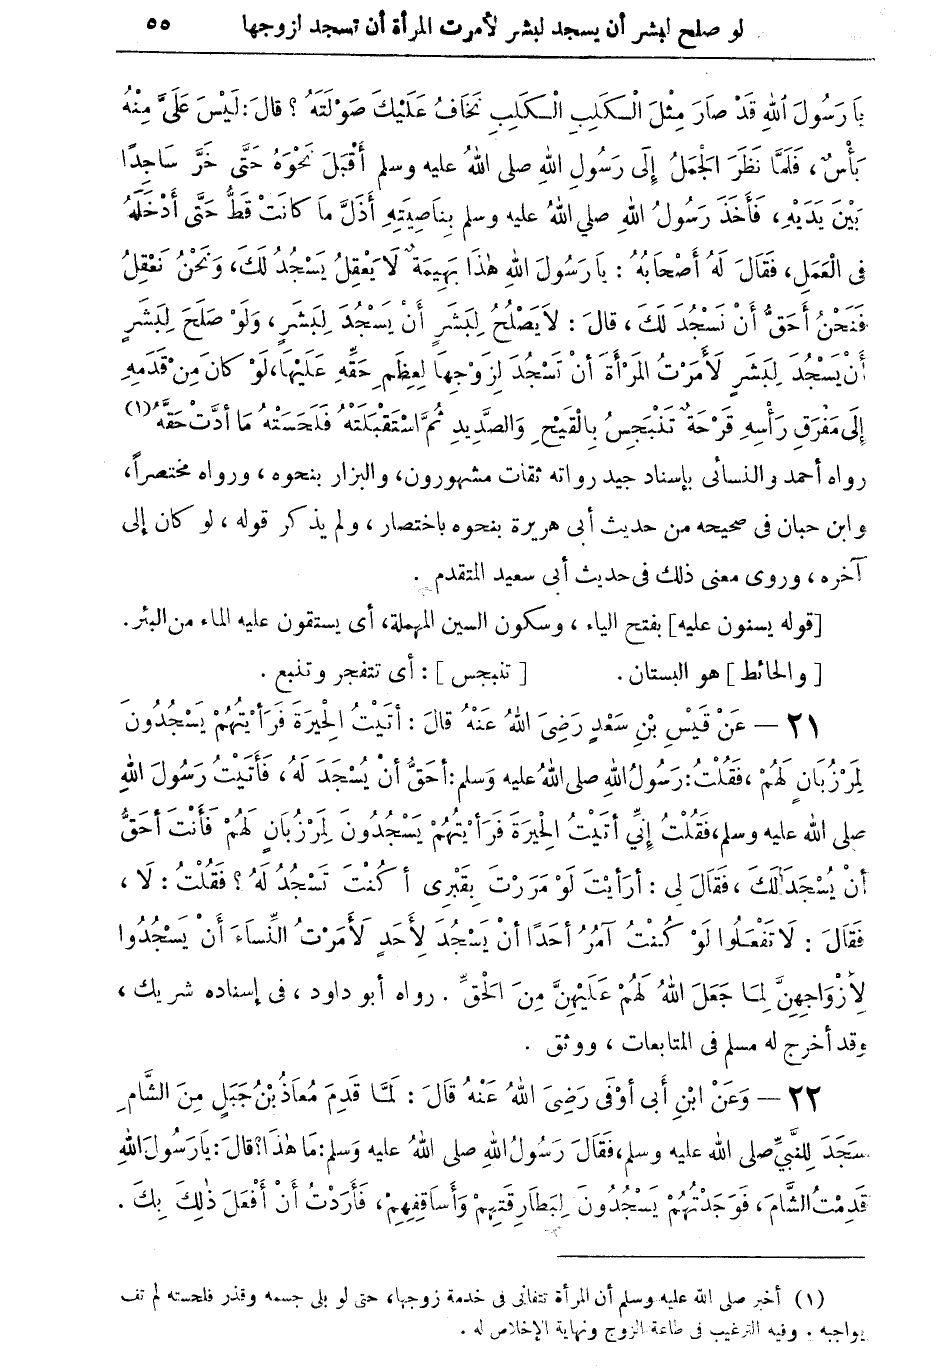 لو صلح لبشر أن يسجد لبشر لأمرت المرأة أن تسجد لزوجها ٥٥
يَا رَسُولَ اللهِ قَدْ صَارَ مِثْلَ الْكَلْبِ الْكَلِبِ نَخَافُ عَلَيْكَ صَوْلَتَهُ ؟ قالَ : لَيْسَ عَلَيَّ مِنْهُ
بَأْسٌ ، فَلَمَّا نَظَرَ الْجَمَلُ إِلَى رَسُولِ اللهِ صلى اللهُ عليه وسلم أَقْبَلَ نَحْوَهُ حَتَّى خَرَّ سَاجِدًا
بَيْنَ يَدَيْهِ ، فَأَخَذَ رَسُولُ اللهِ صلى اللهُ عليه وسلم بِنَاصِيَتِهِ أَذَلَّ مَا كَانَتْ قَطُّ حَتَّى أَدْخَلَهُ
فى الْعَمَلِ ، فَقَالَ لَهُ أَصْحَابُهُ : يَا رَسُولَ اللهِ هٰذَا بَهِيمَةٌ لَا يَعْقِلُ يَسْجُدُ لَكَ ، وَنَحْنُ نَعْقِلُ
فَنَحْنُ أَحَقُّ أَنْ نَسْجُدَ لَكَ ، قالَ : لَا يَصْلُحُ لِبَشَرٍ أَنْ يَسْجُدَ لِبَشَرٍ ، وَلَوْ صَلَحَ لِبَشَرٍ
أَنْ يَسْجُدَ لِبَشَرٍ لَأَمَرْتُ الْمَرْأَةَ أَنْ تَسْجُدَ لِزَوْجِهَا لِعِظَمِ حَقِّهِ عَلَيْهَا ، لَوْ كَانَ مِنْ قَدَمِهِ
إِلَى مَفْرَقِ رَأْسِهِ قَرْحَةٌ تَنْبَجِسُ بِالْقَيْحِ وَالصَّدِيدِ ثُمَّ اسْتَقْبَلَتْهُ فَلَحَسَتْهُ مَا أَدَّتْ حَقَّهُ (١)
رواه أحمد والنسائى بإسناد جيد رواته ثقات مشهورون، والبزار بنحوه ، ورواه مختصراً،
وابن حبان فى صحيحه من حديث أبى هريرة بنحوه باختصار ، ولم يذكر قوله ، لو كان إلى
آخره ، وروى معنى ذلك فى حديث أبى سعيد المتقدم .
[قوله يسنون عليه] بفتح الياء ، وسكون السين المهملة، أى يستقون عليه الماء من البئر.
[ والحائط ] هو البستان . [ تنبجس ] : أى تتفجر وتنبع .
٢١ — عَنْ قَيْسِ بْنِ سَعْدٍ رَضِىَ اللهُ عَنْهُ قالَ : أَتَيْتُ الْحِيرَةَ فَرَأَيْتُهُمْ يَسْجُدُونَ
لِمَرْزُبَانٍ لَهُمْ ، فَقُلْتُ : رَسُولُ اللهِ صلى اللهُ عليه وَسلم : أَحَقُّ أَنْ يُسْجَدَ لَهُ ، فَأَتَيْتُ رَسُولَ اللهِ
صلى الله عليه وسلم، فَقُلْتُ إِنِّي أَتَيْتُ الْحِيرَةَ فَرَأَيْتُهُمْ يَسْجُدُونَ لِمَرْزُبَانٍ لَهُمْ فَأَنْتَ أَحَقُّ
أَنْ يُسْجَدَ لَكَ ، فَقَالَ لِى : أَرَأَيْتَ لَوْ مَرَرْتَ بِقَبْرِى أَ كُنْتَ تَسْجُدُ لَهُ ؟ فَقُلْتُ : لَا ،
فَقَالَ : لَا تَفْعَلُوا لَوْ كُنْتُ آمُرُ أَحَدًا أَنْ يَسْجُدَ لِأَحَدٍ لَأَمَرْتُ النِّسَاءَ أَنْ يَسْجُدُوا
لِأَزْوَاجِهِنَّ لِمَا جَعَلَ اللهُ لَهُمْ عَلَيْهِنَّ مِنَ الْحَقِّ . رواه أبو داود ، فى إسناده شريك ،
وقد أخرج له مسلم فى المتابعات ، ووثق .
٢٢ — وَعَنْ ابْنِ أَبِى أَوْفَى رَضِىَ اللهُ عَنْهُ قَالَ : لَمَّا قَدِمَ مُعَاذُ بْنُ جَبَلٍ مِنَ الشَّامِ
سَجَدَ لِلنَّبِيِّ صلى الله عليه وسلم، فَقَالَ رَسُولُ اللهِ صلى اللهُ عليه وَسلم : مَا هٰذَا؟ قالَ : يَا رَسُولَ اللهِ
قَدِمْتُ الشَّامَ ، فَوَجَدْتُهُمْ يَسْجُدُونَ لِبَطَارِقَتِهِمْ وَأَسَاقِفِهِمْ، فَأَرَدْتُ أَنْ أَفْعَلَ ذٰلِكَ بِكَ .
(١) أخبر صلى الله عليه وسلم أن المرأة تتفانى فى خدمة زوجها، حتى لو بلى جسمه وقذر فلحسته لم تف
بواجبه . وفيه الترغيب فى طاعة الزوج ونهاية الإخلاص له .